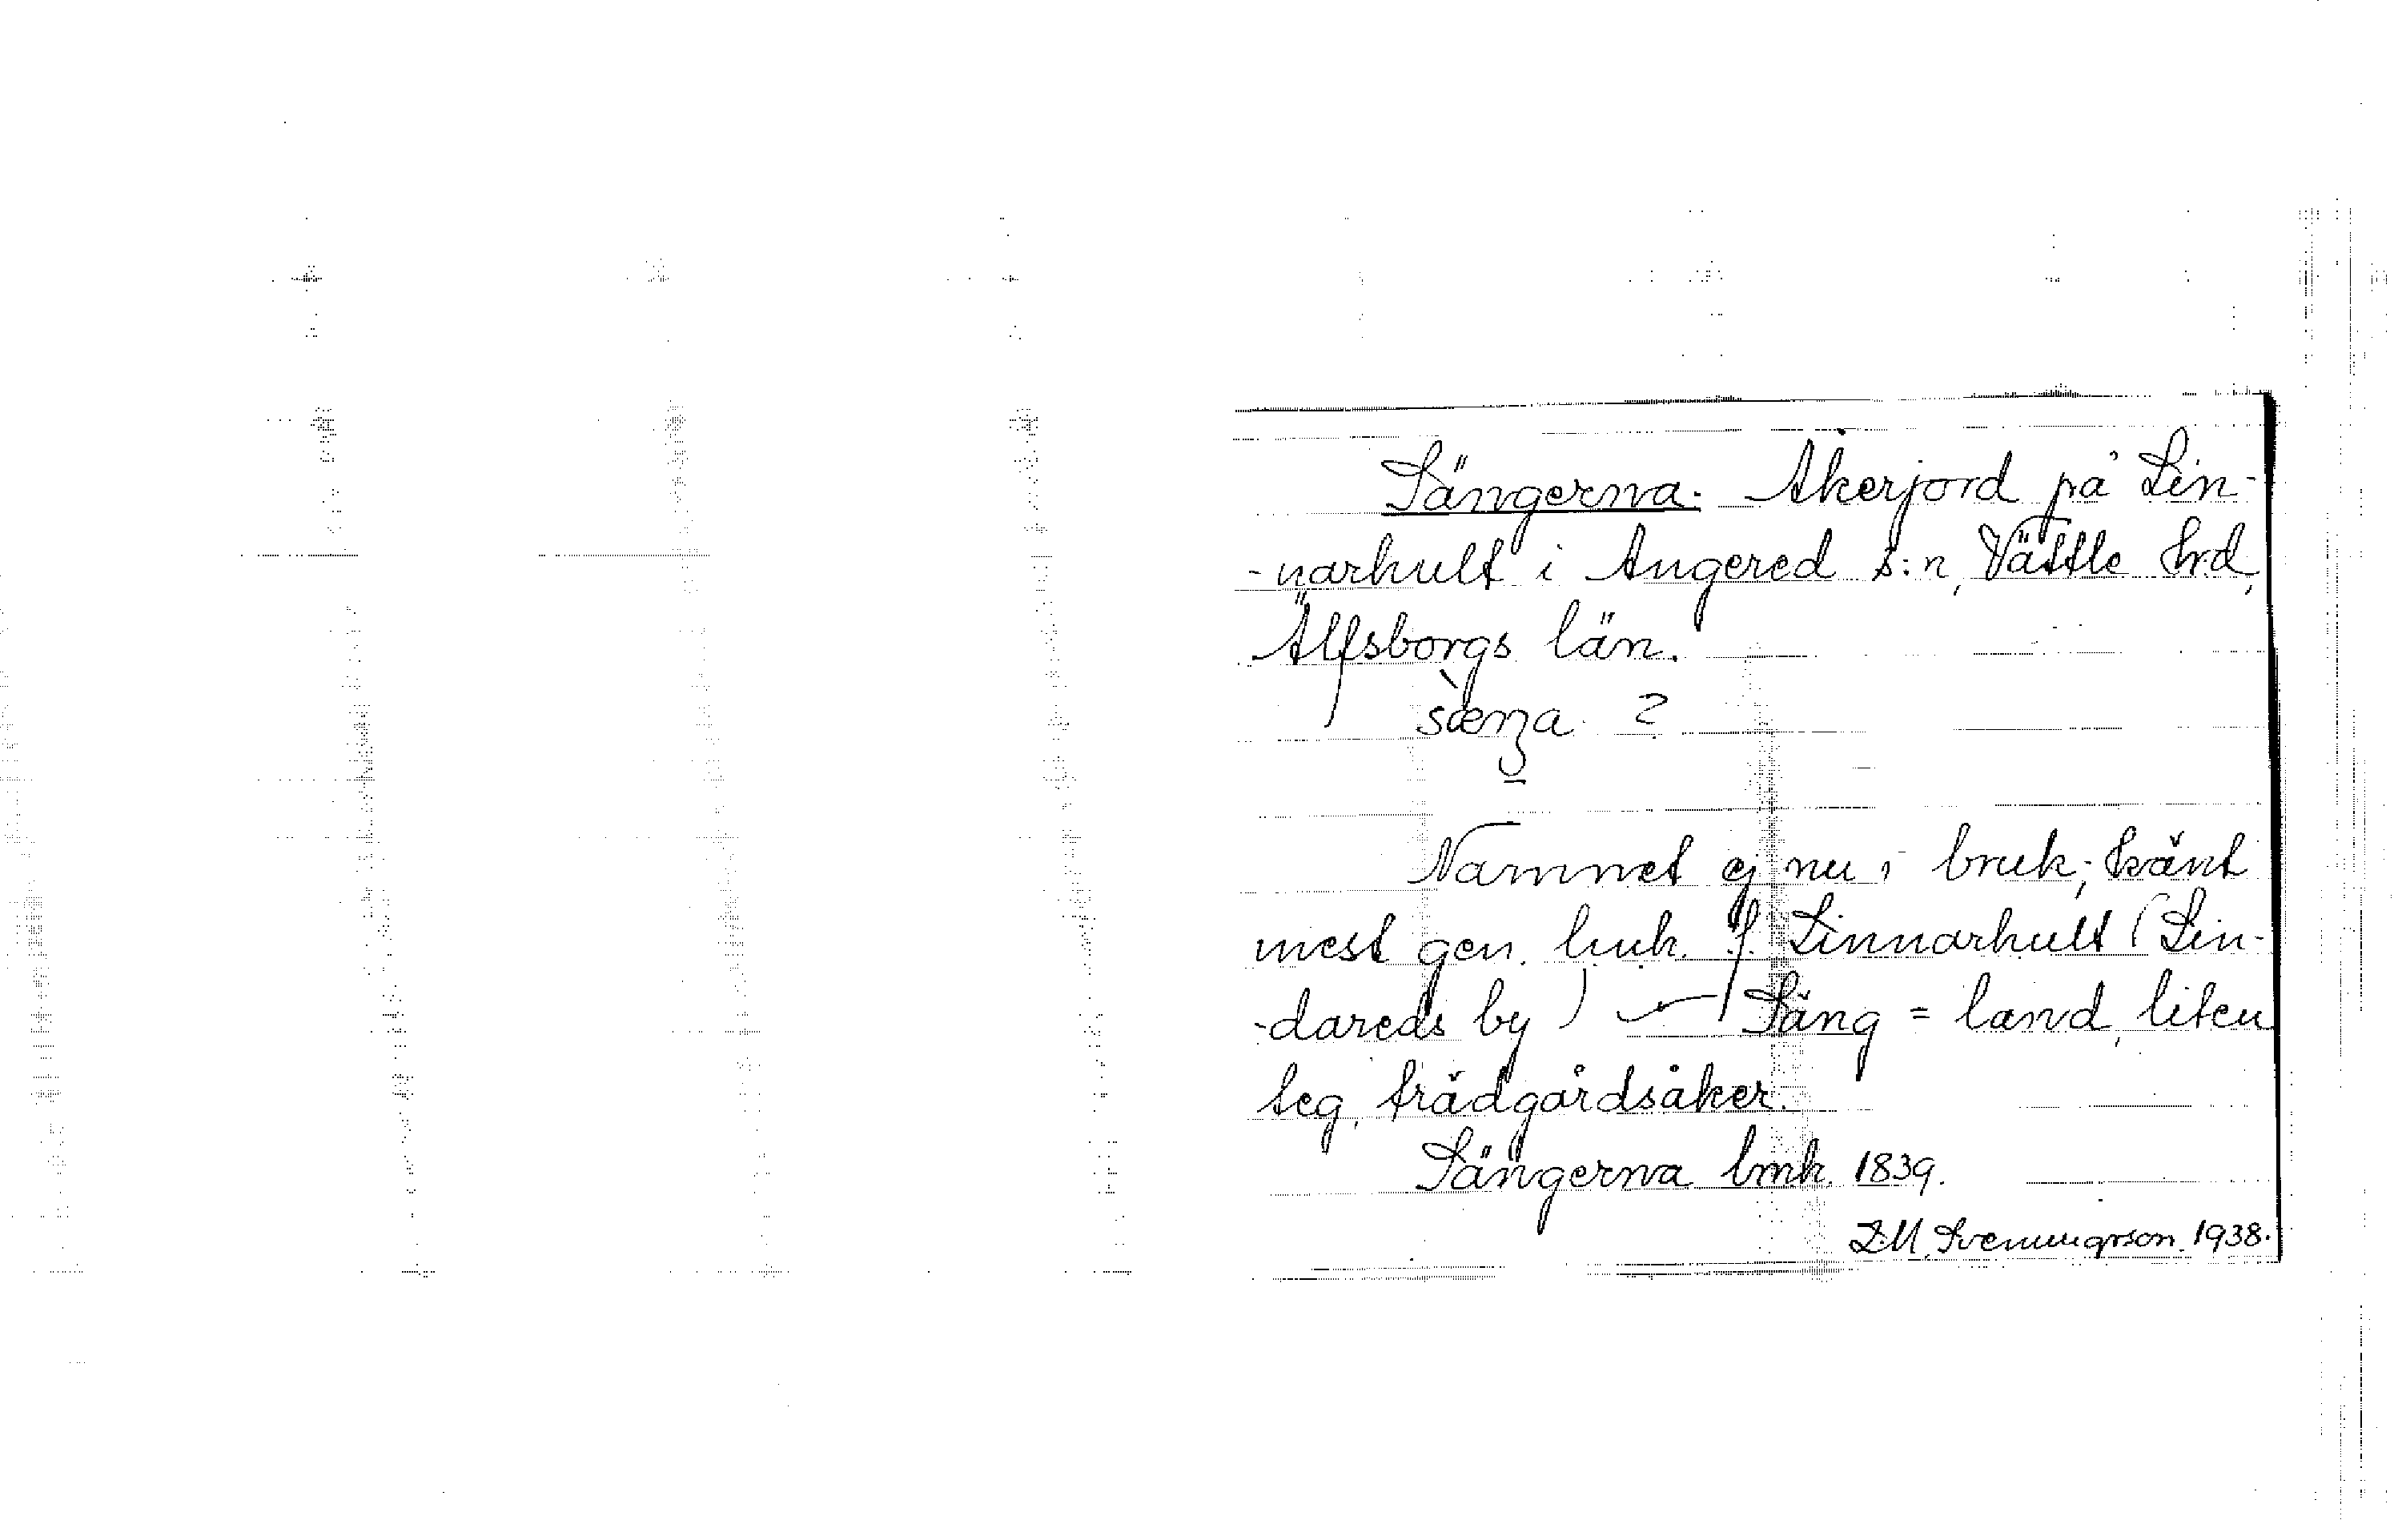 Sängerna. Åkerjord på Lin-
-narhult i Angered s:n, Vättle hrd,
Älfsborgs län.
Namnet ej nu i bruk; känt
mest gen. lmk. f. Linnarhult (Lin-
-dareds by) — Säng = land, liten
teg, trädgårdsåker.
Sängerna lmk. 1839.
L.M. Svenungsson. 1938.